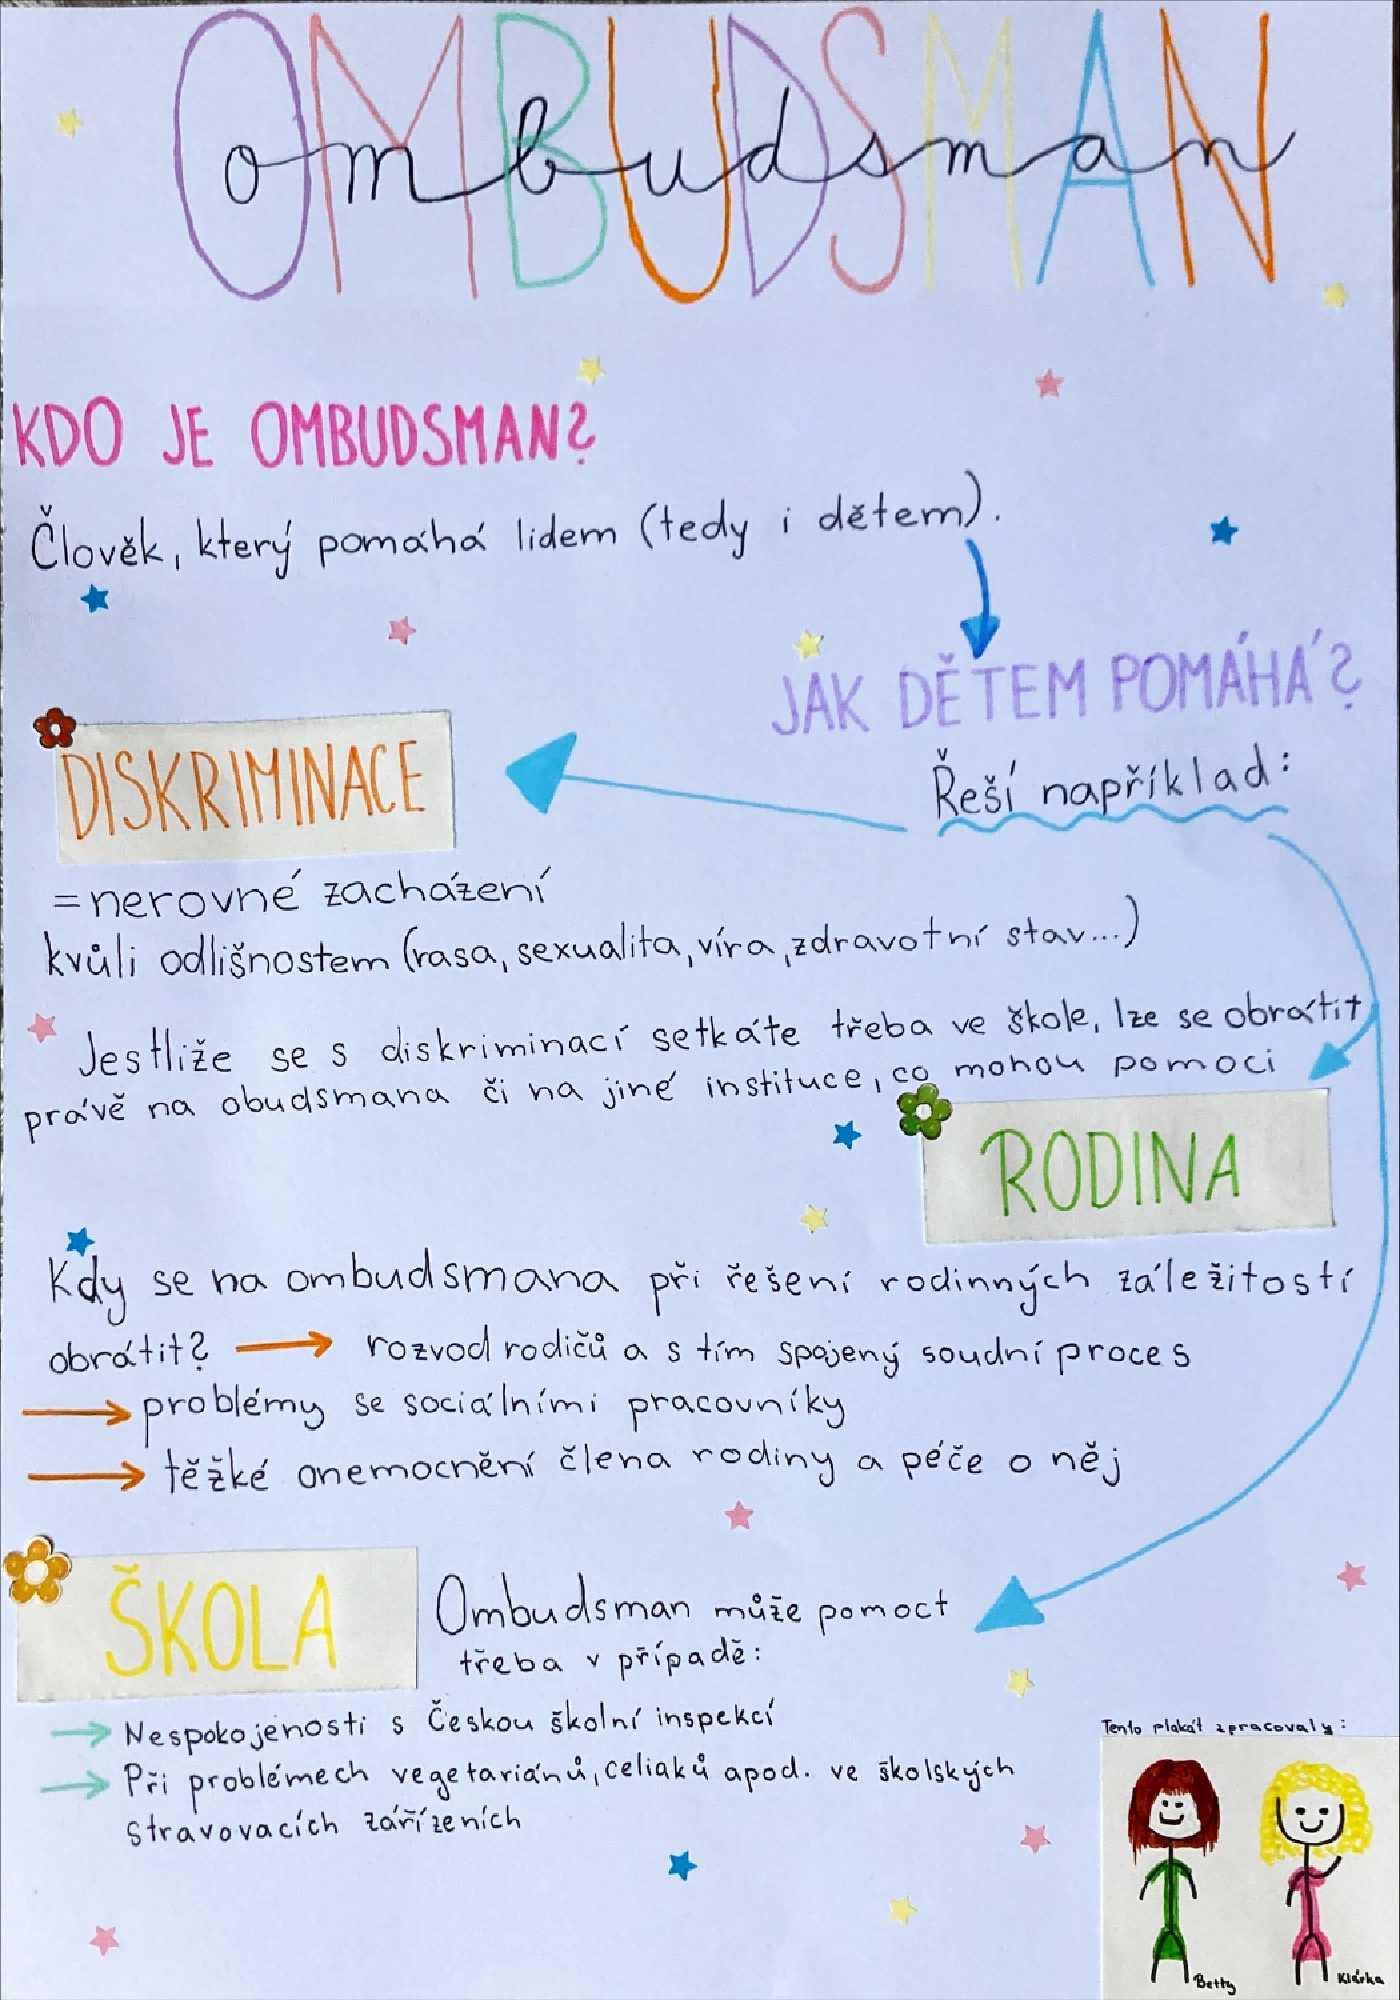 OMBUDSMAN
ombudsman
KDO JE OMBUDSMAN?
Člověk, který pomáhá lidem (tedy i dětem).
JAK DĚTEM POMÁHÁ?
Řeší například:
DISKRIMINACE
=nerovné zacházení
kvůli odlišnostem (rasa, sexualita, víra, zdravotní stav...)
Jestliže se s diskriminací setkáte třeba ve škole, lze se obrátit
právě na obudsmana či na jiné instituce, co mohou pomoci
RODINA
Kdy se na ombudsmana při řešení rodinných záležitostí
obrátit? → rozvod rodičů a s tím spojený soudní proces
→ problémy se sociálními pracovníky
→ těžké onemocnění člena rodiny a péče o něj
ŠKOLA
Ombudsman může pomoct
třeba v případě:
→ Nespokojenosti s Českou školní inspekcí
→ Při problémech vegetariánů, celiaků apod. ve školských
stravovacích zářízeních
Tento plakát zpracovaly:
Betty
Klárka